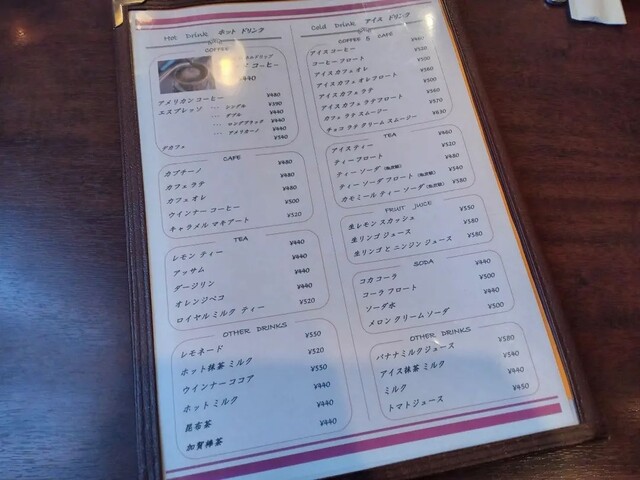 Hot Drink ホット ドリンク
COFFEE
コーヒー
¥440
アメリカンコーヒー ¥480
エスプレッソ ･･･ シングル ¥390
･･･ ダブル ¥440
･･･ ロングブラック ¥440
･･･ アメリカーノ ¥440
デカフェ ¥540
CAFE
カプチーノ ¥480
カフェ ラテ ¥480
カフェ オレ ¥480
ウインナー コーヒー ¥500
キャラメル マキアート ¥520
TEA
レモン ティー ¥440
アッサム ¥440
ダージリン ¥440
オレンジペコ ¥440
ロイヤル ミルク ティー ¥520
OTHER DRINKS
レモネード ¥550
ホット抹茶 ミルク ¥520
ウインナーココア ¥550
ホット ミルク ¥440
昆布茶 ¥440
加賀棒茶 ¥440
Cold Drink アイス ドリンク
COFFEE & CAFE
アイスコーヒー ¥440
コーヒーフロート ¥520
アイスカフェオレ ¥500
アイスカフェオレフロート ¥580
アイスカフェラテ ¥500
アイスカフェラテフロート ¥560
カフェラテ スムージー ¥570
チョコ ラテ クリーム スムージー ¥630
TEA
アイスティー ¥440
ティーフロート ¥520
ティー ソーダ ¥480
ティー ソーダ フロート ¥540
カモミール ティー ソーダ ¥580
FRUIT JUICE
生レモン スカッシュ ¥550
生リンゴ ジュース ¥580
生リンゴ と ニンジン ジュース ¥580
SODA
コカ コーラ ¥440
コーラ フロート ¥500
ソーダ水 ¥440
メロン クリーム ソーダ ¥500
OTHER DRINKS
バナナミルクジュース ¥580
アイス抹茶 ミルク ¥540
ミルク ¥440
トマトジュース ¥450